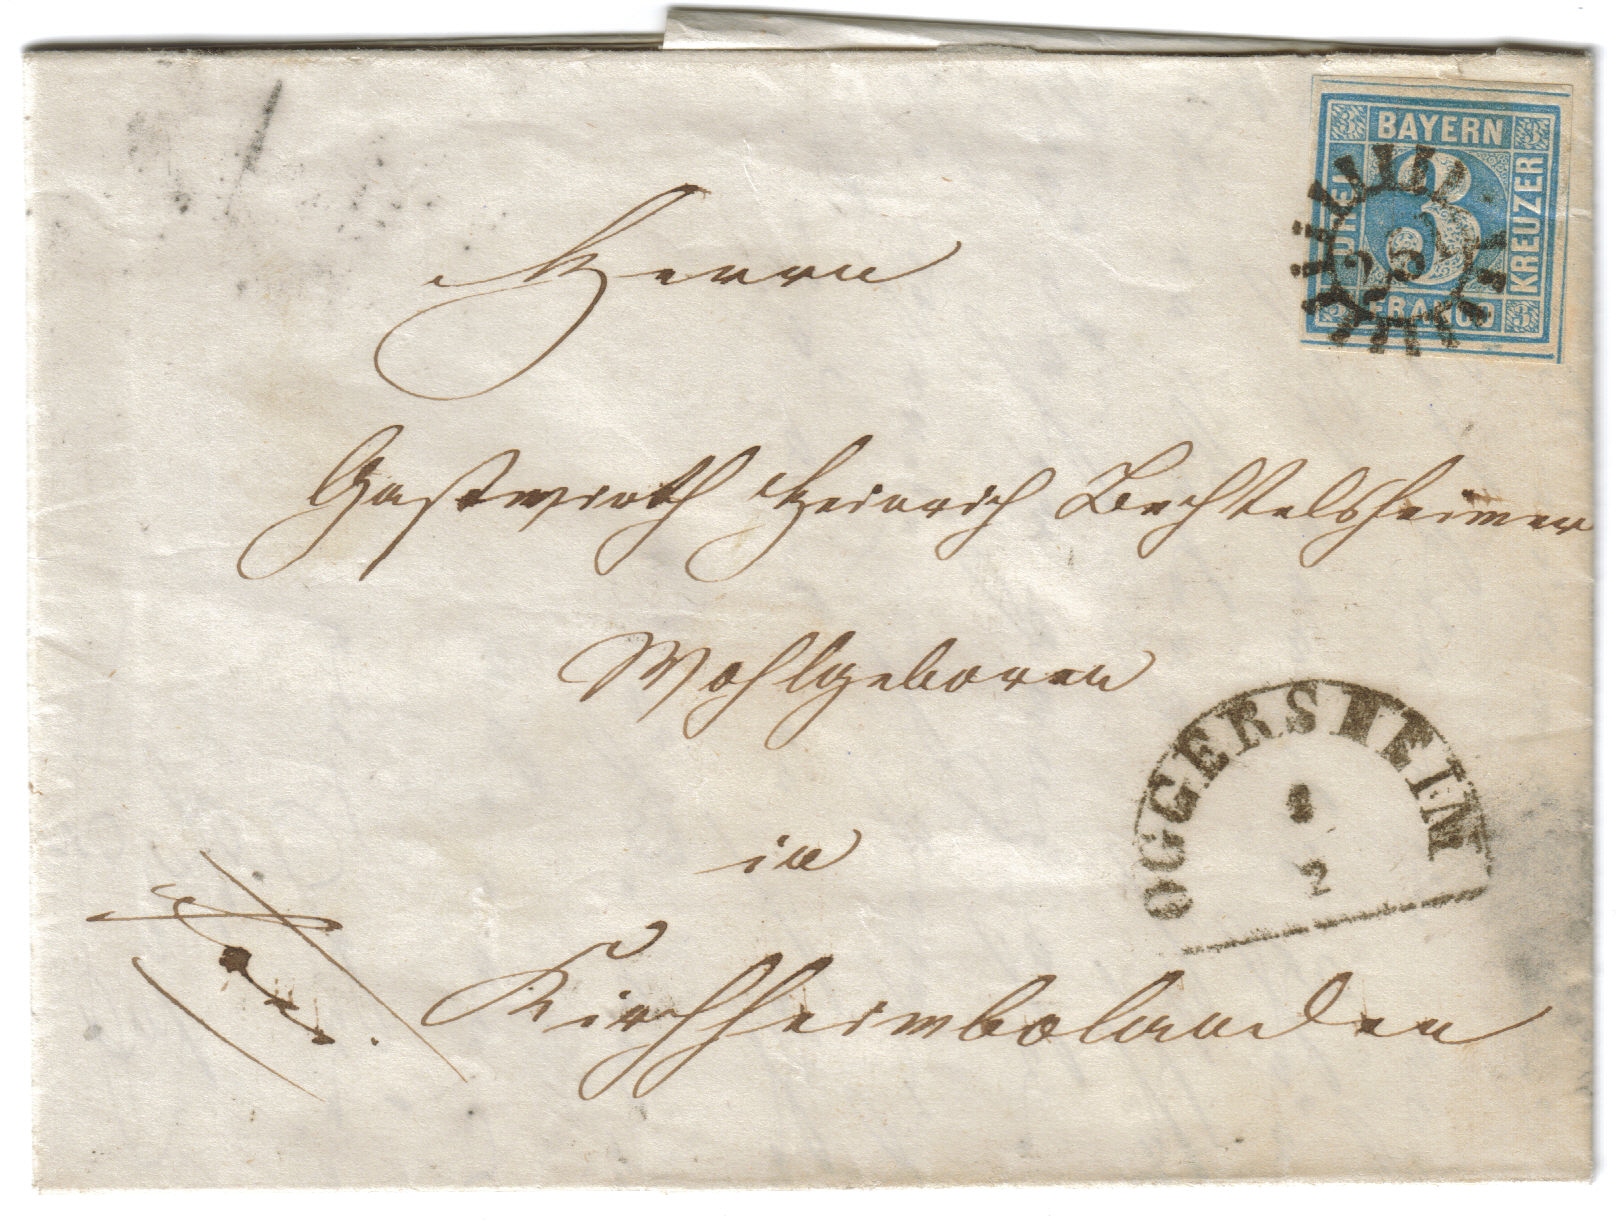 BAYERN
DREI
3
KREUZER
FRANCO
Herrn
Gastwirth Heinrich Bechtelsheimer
Wohlgeboren
in
Kirchheimbolanden
OGGERSHEIM
8
2